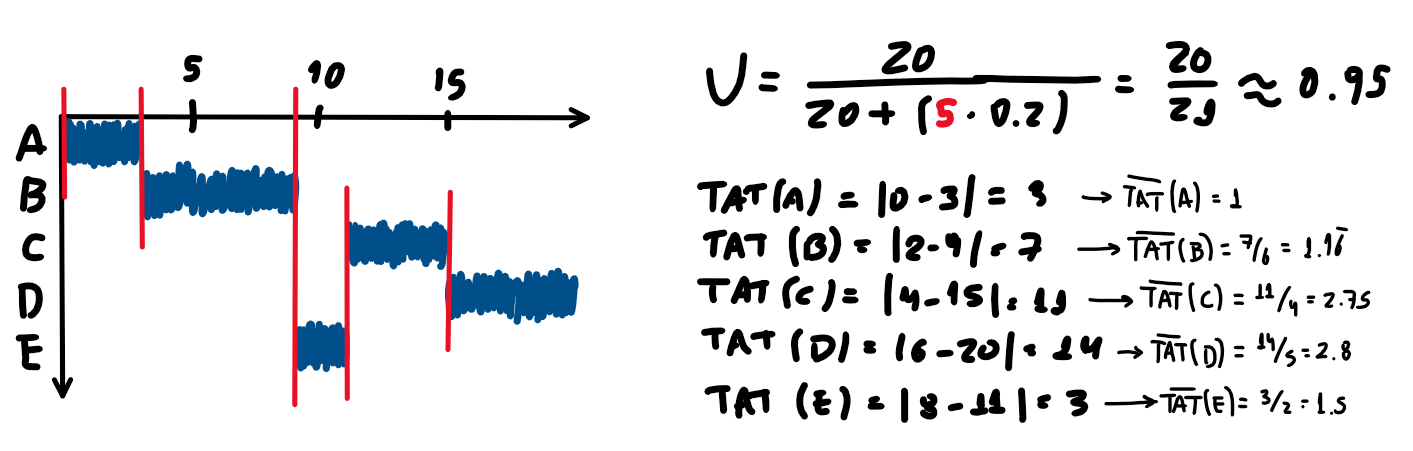 5 10 15
A
B
C
D
E
U = 20 / 20 + (5 · 0.2) = 20 / 21 ≈ 0.95
TAT(A) = |0-3| = 3 → T̅A̅T̅(A) = 1
TAT (B) = |2-9| = 7 → T̅A̅T̅(B) = 7/6 = 1.16̅
TAT (C) = |4-15| = 11 → T̅A̅T̅(C) = 11/4 = 2.75
TAT (D) = |6-20| = 14 → T̅A̅T̅(D) = 14/5 = 2.8
TAT (E) = |8-11| = 3 → T̅A̅T̅(E) = 3/2 = 1.5